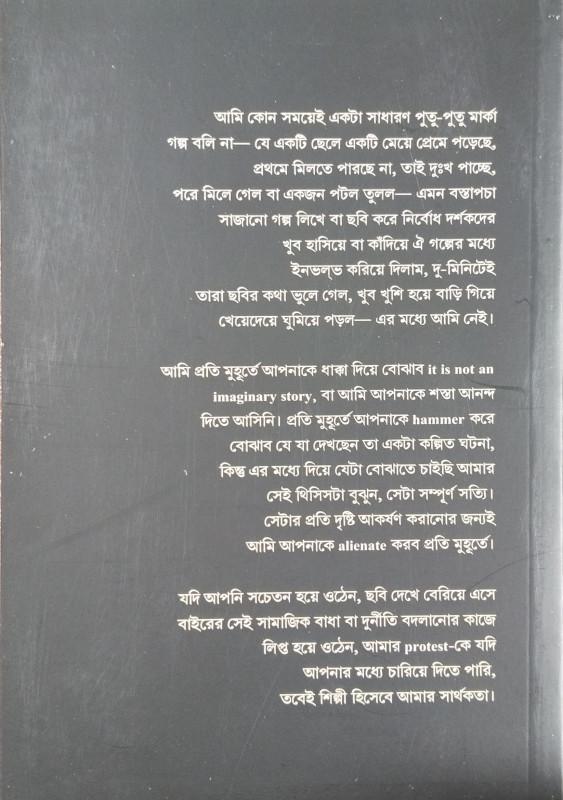 আমি কোন সময়েই একটা সাধারণ পুতু-পুতু মার্কা
গল্প বলি না— যে একটি ছেলে একটি মেয়ে প্রেমে পড়েছে,
প্রথমে মিলতে পারছে না, তাই দুঃখ পাচ্ছে,
পরে মিলে গেল বা একজন পটল তুলল— এমন বস্তাপচা
সাজানো গল্প লিখে বা ছবি করে নির্বোধ দর্শকদের
খুব হাসিয়ে বা কাঁদিয়ে ঐ গল্পের মধ্যে
ইনভল্‌ভ করিয়ে দিলাম, দু-মিনিটেই
তারা ছবির কথা ভুলে গেল, খুব খুশি হয়ে বাড়ি গিয়ে
খেয়েদেয়ে ঘুমিয়ে পড়ল— এর মধ্যে আমি নেই।
আমি প্রতি মুহূর্তে আপনাকে ধাক্কা দিয়ে বোঝাব it is not an
imaginary story, বা আমি আপনাকে শস্তা আনন্দ
দিতে আসিনি। প্রতি মুহূর্তে আপনাকে hammer করে
বোঝাব যে যা দেখছেন তা একটা কল্পিত ঘটনা,
কিন্তু এর মধ্যে দিয়ে যেটা বোঝাতে চাইছি আমার
সেই থিসিসটা বুঝুন, সেটা সম্পূর্ণ সত্যি।
সেটার প্রতি দৃষ্টি আকর্ষণ করানোর জন্যই
আমি আপনাকে alienate করব প্রতি মুহূর্তে।
যদি আপনি সচেতন হয়ে ওঠেন, ছবি দেখে বেরিয়ে এসে
বাইরের সেই সামাজিক বাধা বা দুর্নীতি বদলানোর কাজে
লিপ্ত হয়ে ওঠেন, আমার protest-কে যদি
আপনার মধ্যে চারিয়ে দিতে পারি,
তবেই শিল্পী হিসেবে আমার সার্থকতা।